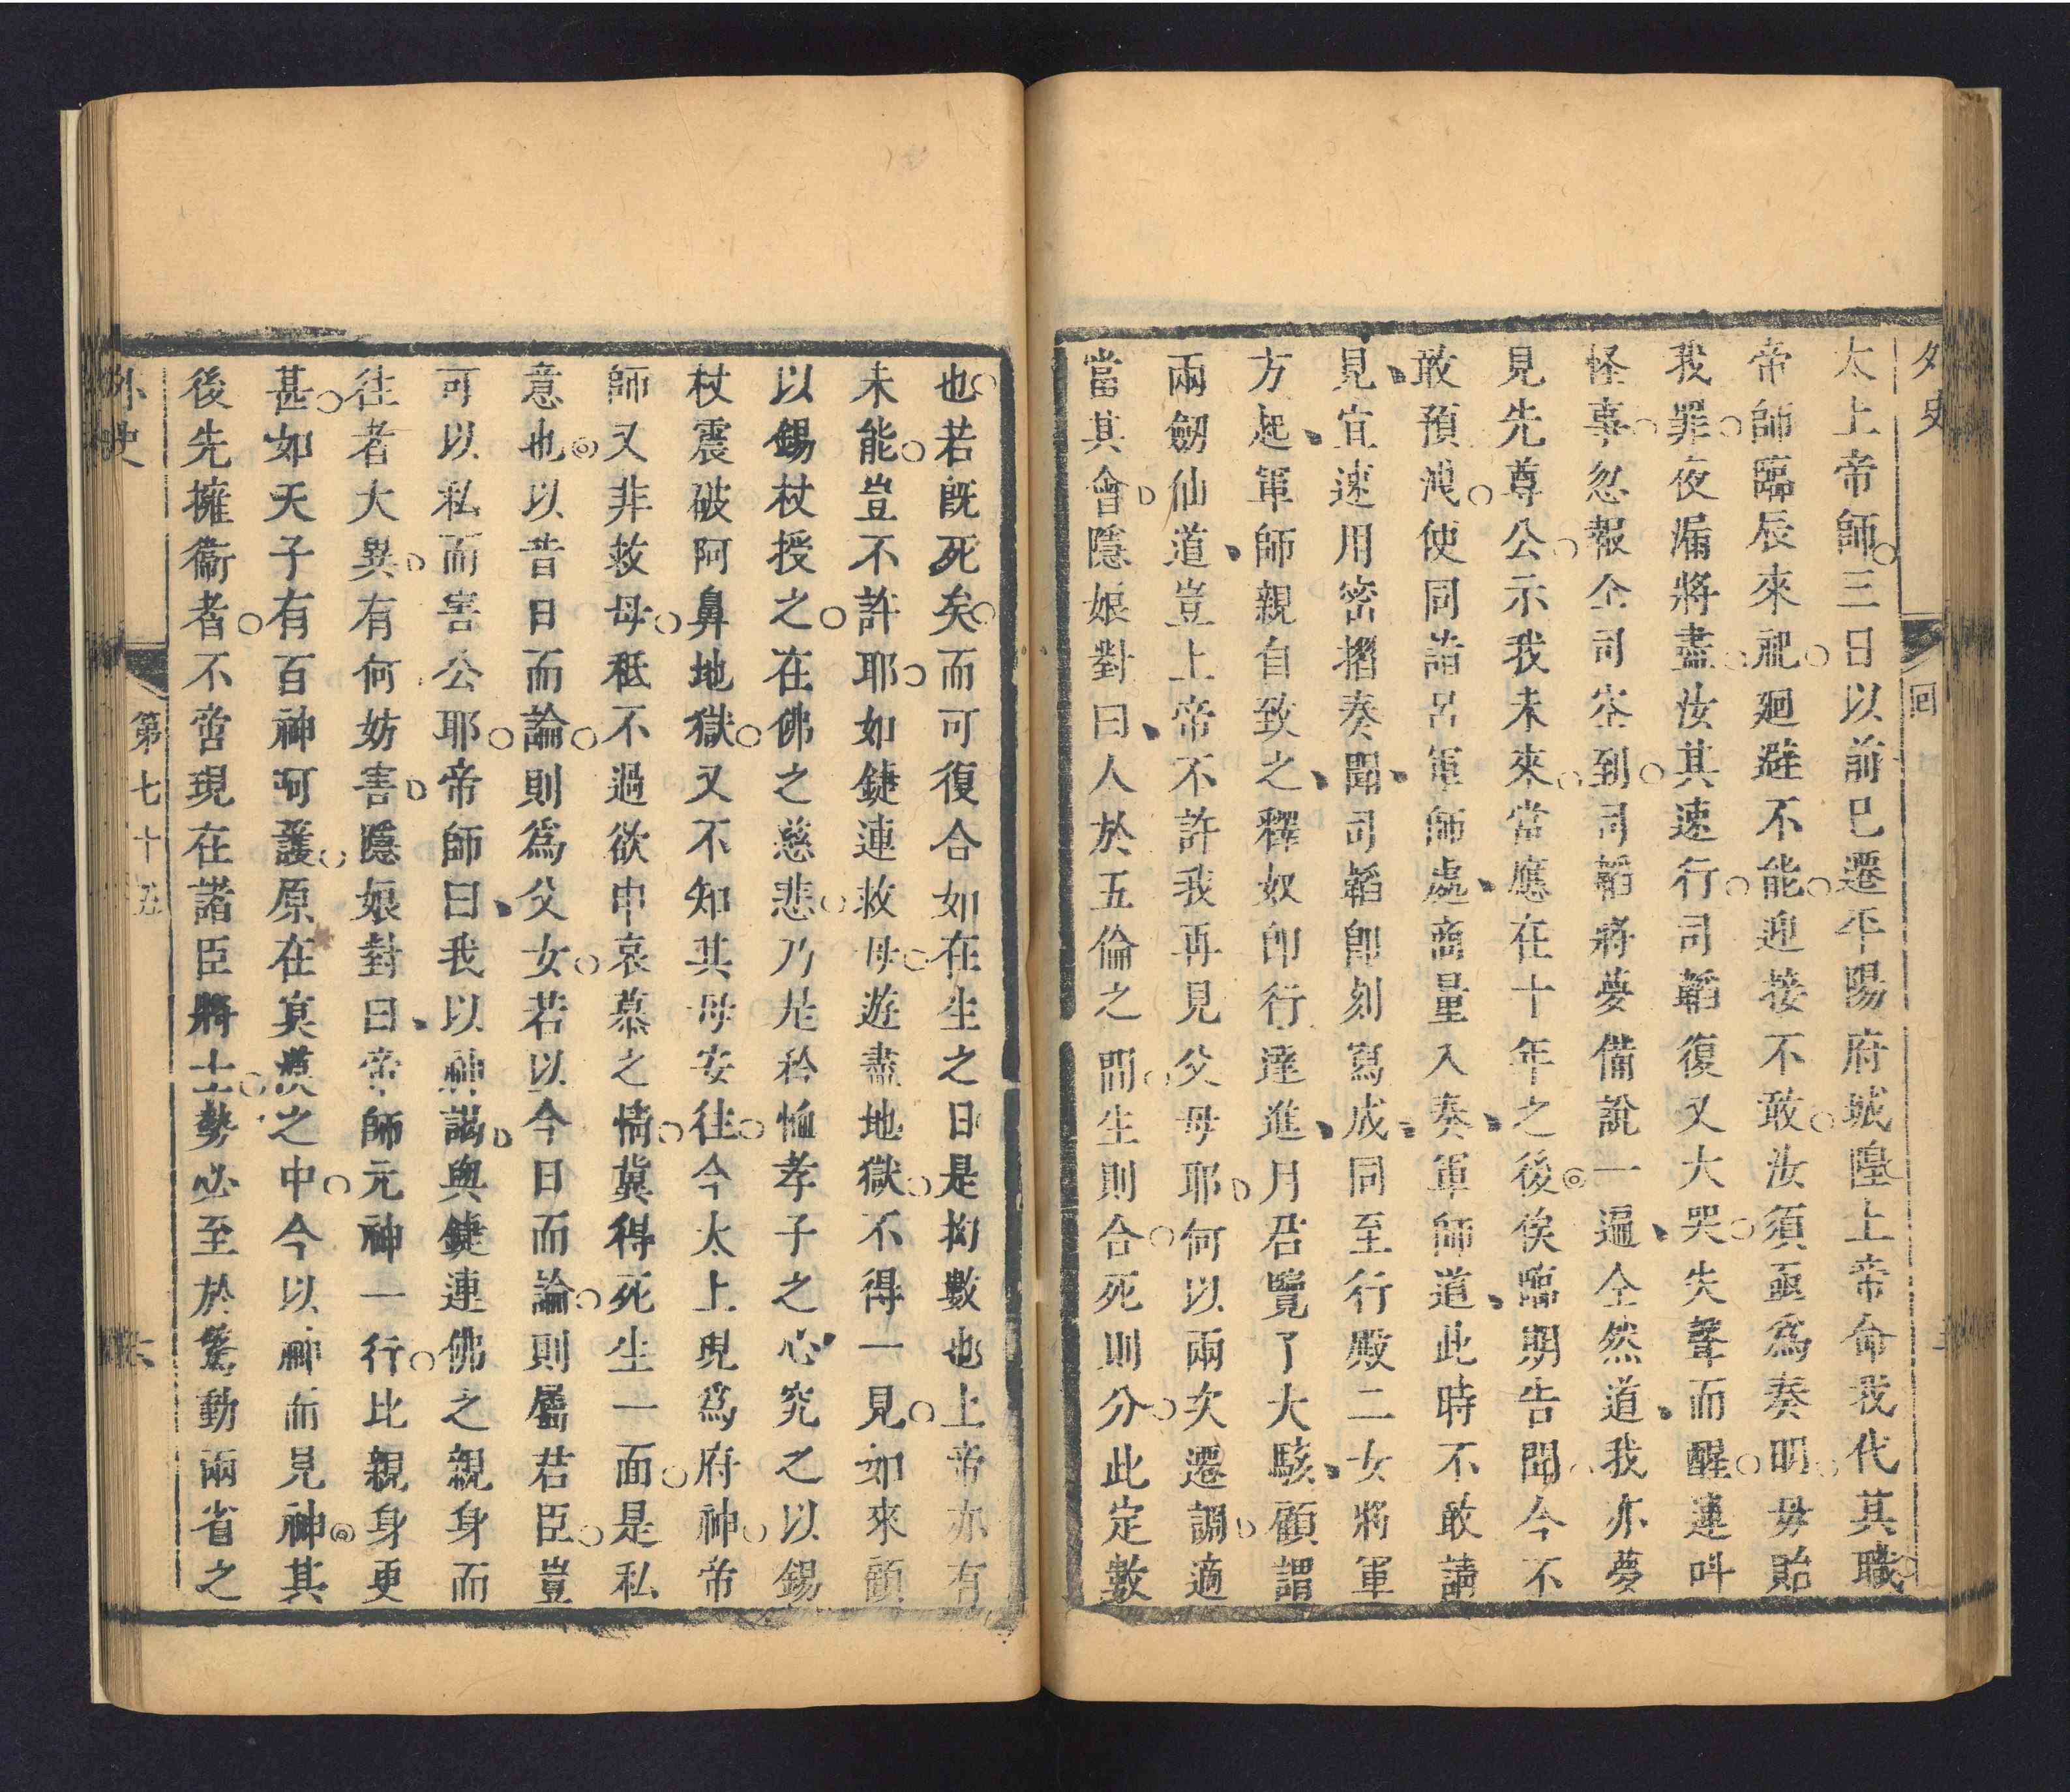 外史
回
太上帝師三日以前已遷平陽府城隍上帝命我代其職
帝師臨辰來祀廻避不能迎接不敢汝須亟爲奏明毋貽
我罪夜漏將盡汝其速行司韜復又大哭失聲而醒連呌
怪事忽報仝司峇到司韜將夢備說一遍仝然道我亦夢
見先尊公示我未來當應在十年之後俟臨期告聞今不
敢預洩使同諧呂軍師處商量入奏軍師道此時不敢請
見宜速用密摺奏聞司韜卽刻寫成同至行殿二女將軍
方起軍師親自致之釋奴卽行達進月君覽了大駭顧謂
兩劒仙道豈上帝不許我再見父母耶何以兩次遷調適
當其會隱娘對曰人於五倫之間生則合死則分此定數
也若旣死矣而可復合如在生之日是拘數也上帝亦有
未能豈不許耶如鍵連救母遊盡地獄不得一見如來願
以錫杖授之在佛之慈悲乃是矜恤孝子之心究之以錫
杖震破阿鼻地獄又不知其母安往今太上現爲府神帝
師又非救母秪不過欲申哀慕之情冀得死生一面是私
意也以昔日而論則爲父女若以今日而論則屬君臣豈
可以私而害公耶帝師曰我以神謁與鍵連佛之親身而
往者大異有何妨害隱娘對曰帝師元神一行比親身更
甚如天子有百神呵護原在寞漠之中今以神而見神其
後先擁衞者不啻現在諸臣將士勢必至於驚動兩省之
外史
第七十五
六